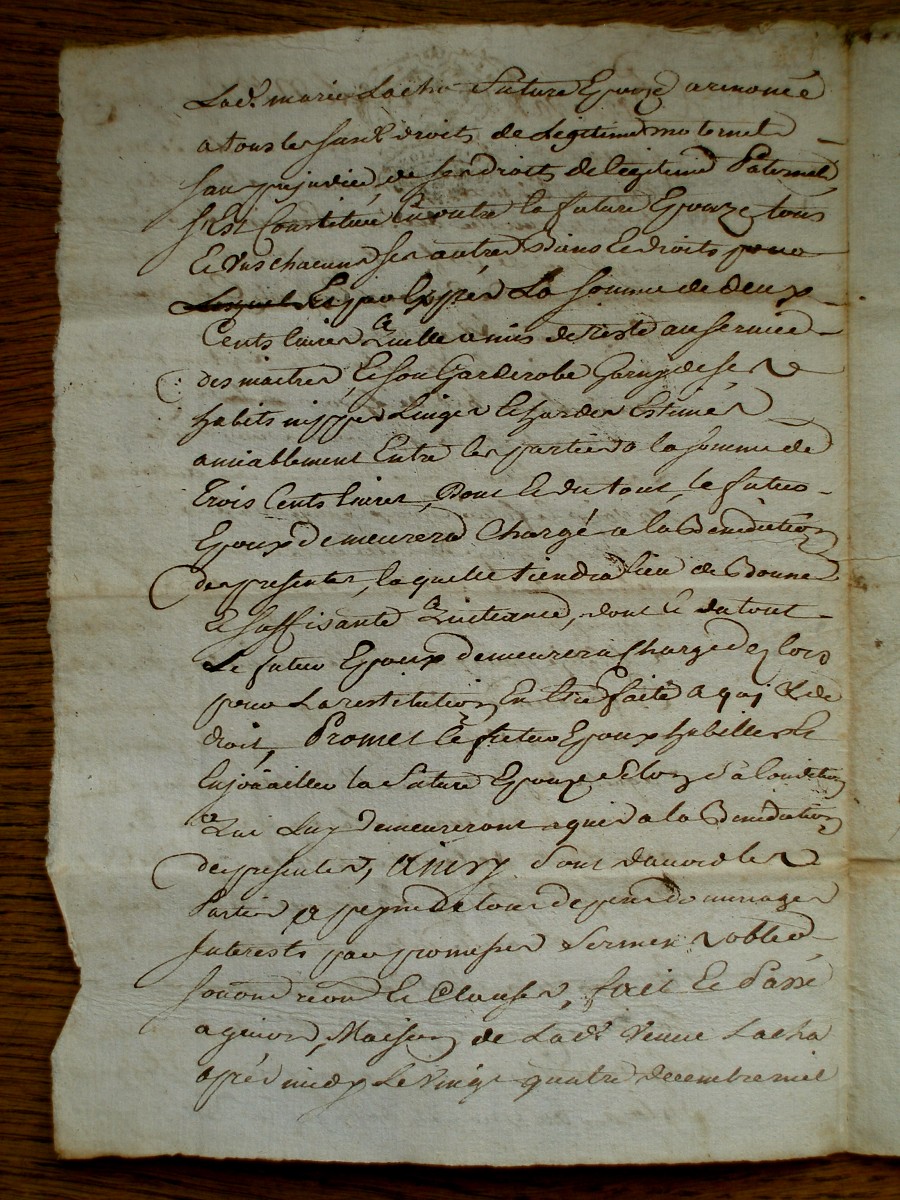 Lad.e marie Lacha future Epouze a renoncé
a tous les susd. droits de Légitime maternel
sans prejudice de ses droits de legitime Paternel
s'Est Constitué En outre la future Epouze tous
Et Uns chacuns ses autres Biens Et droits pour
Et par Exprés La somme de deux
Cents livres Quelle a mis de reste au service
des maitres, Et son Garderobe Garny de ses
habits nippes Linges Et hardes Estimés
amiablement Entre les parties a la somme de
Trois Cents livres, Dont Et du tout, le futur
Epoux demeurera Chargé a la Benediction
des presentes, laquelle tiendra lieu de Bonne
Et suffisante Quittance, dont Et du tout
Le futur Epoux demeurera Chargé dez lors
pour La restitution En Etre faite a qui de
droit, Promet le futur Epoux habiller Et
Enjoüailler la future Epouze selon sa Condition
Qui Luy demeureront aquis a la Benediction
des presentes, Ainsy sont d'accord les
Parties a peyne de tous depens domages
Interests par promesses Serment obligé
renon Et Clauses, fait Et Passé
a Maison de Lad.e veuve Lacha
aprés midy Le Vingt quatre decembre mil